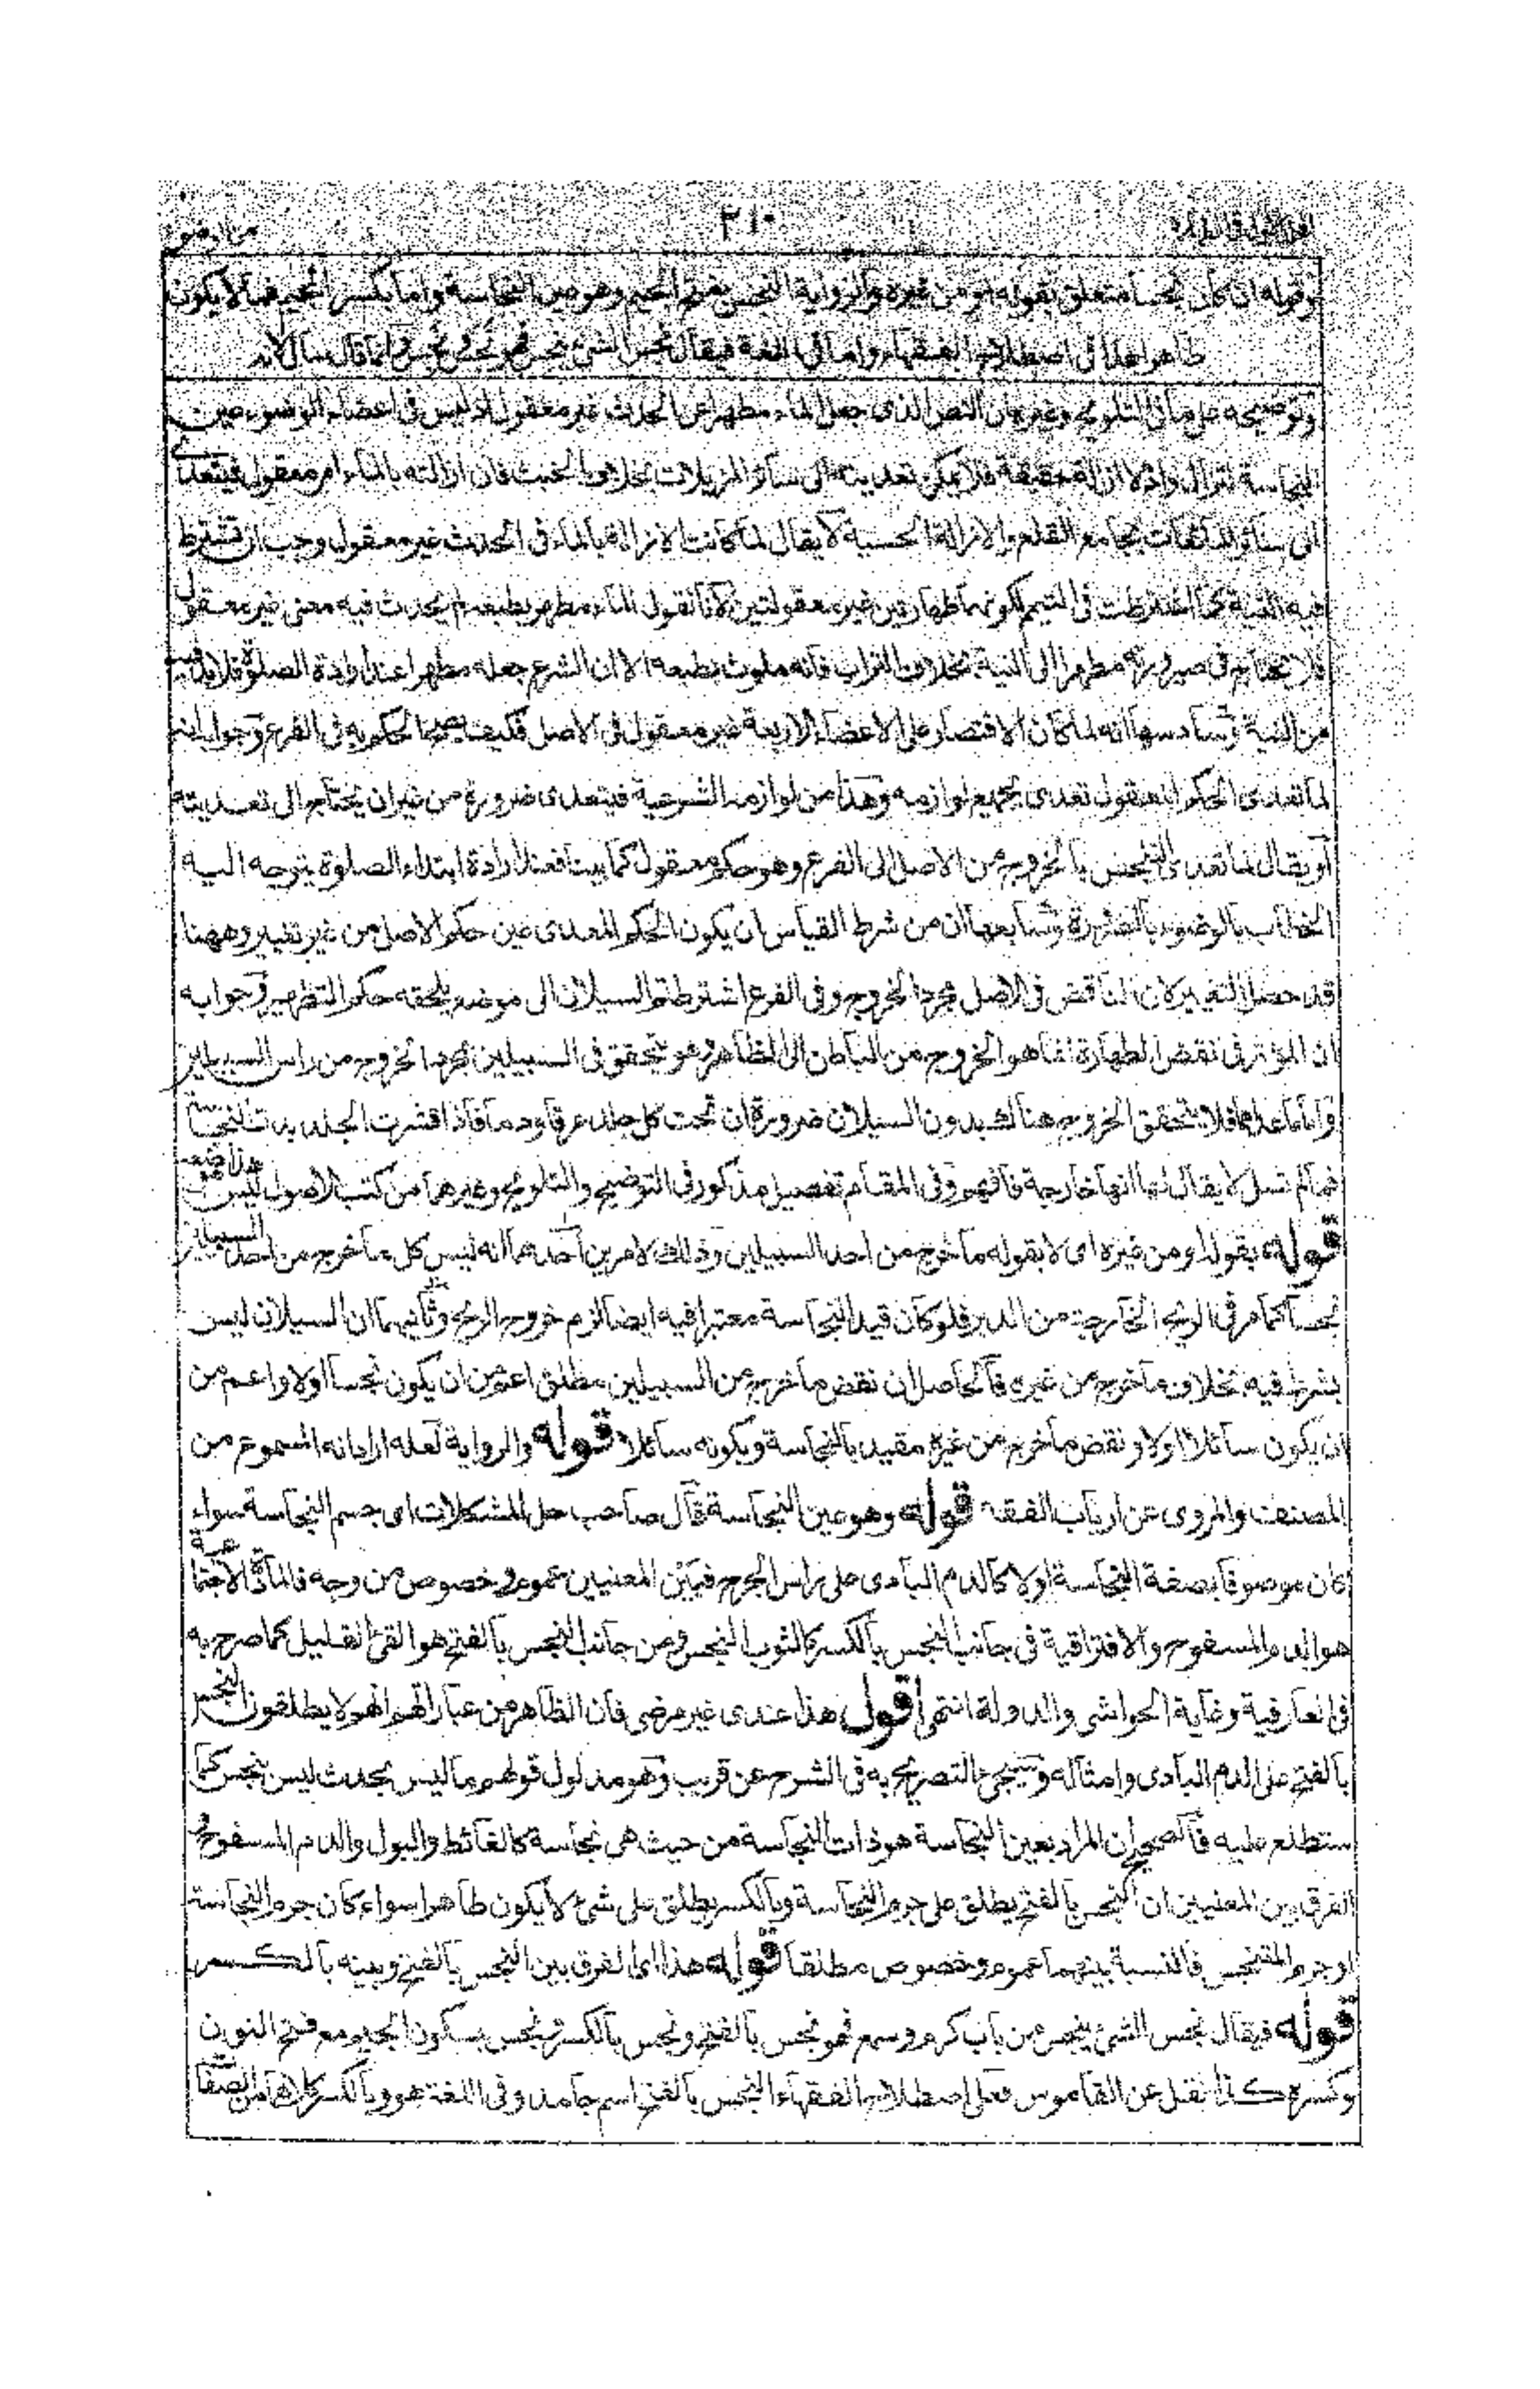 ٢١٠
وقوله ان كان نجسا متعلق بقوله او من غيره والرواية النجس بفتح الجيم وهو عين النجاسة واما بكسر الجيم فما لا يكون
طاهرا هذا فى اصطلاح الفقهاء واما فى اللغة فيقال نجس الشئ ينجس فهو نجس ونجس وانما قال سال
وتوضيحه على ما فى التلويح وغيره ان النص الذى جعل الماء مطهرا عن الحدث غير معقول اذ ليس فى اعضاء الوضوء عين
النجاسة تزال ازالة حقيقة فلا يمكن تعديته الى سائر المزيلات بخلاف الخبث فان ازالته بالماء امر معقول فيتعدى
الى سائر المائعات بجامع القلع والازالة الحسية لا يقال لما كانت الازالة بالماء فى الحدث غير معقول وجب ان تشترط
فيه النية كما اشترطت فى التيمم لكونهما طهارتين غير معقولتين لانا نقول الماء مطهر بطبعه لم يحدث فيه معنى غير معقول
فلا يحتاج فى صيرورته مطهرا الى النية بخلاف التراب فانه ملوث بطبعه الا ان الشرع جعله مطهرا عند ارادة الصلوة فلا بد فيه
من النية وسادسها انه لما كان الاقتصار على الاعضاء الاربعة غير معقول فى الاصل فكيف يصح الحكم به فى الفرع وجوابه انه
لما تعدى الحكم المعقول تعدى بجميع لوازمه وهذا من لوازمه الشرعية فيتعدى ضرورة من غير ان يحتاج الى تعديته
او يقال لما تعدى التنجس بالخروج من الاصل الى الفرع وهو حكم معقول كما بينا فعند ارادة ابتداء الصلوة يتوجه اليه
الخطاب بالوضوء بالضرورة وسابعها ان من شرط القياس ان يكون الحكم المعدى عين حكم الاصل من غير تغيير وههنا
قد حصل التغيير لان الناقض فى الاصل مجرد الخروج وفى الفرع اشترطتم السيلان الى موضع يلحقه حكم التطهير وجوابه
ان المؤثر فى نقض الطهارة انما هو الخروج من الباطن الى الظاهر وهو يتحقق فى السبيلين بمجرد الخروج من راس السبيلين
واما ما عداهما فلا يتحقق الخروج هنالك بدون السيلان ضرورة ان تحت كل جلد عرقا ودما فاذا قشرت الجلد بدت النجاسة
فما لم تسل لا يقال لها انها خارجة فافهم وفى المقام تفصيل مذكور فى التوضيح والتلويح وغيرهما من كتب الاصول ليس هذا موضعه
قوله بقوله او من غيره اى لا بقوله ما خرج من احد السبيلين وذلك لامرين احدهما انه ليس كل ما خرج من احد السبيلين
نجسا كما مر فى الريح الخارجة من الدبر فلو كان قيد النجاسة معتبرا فيه ايضا لزم خروج الريح منه وثانيهما ان السيلان ليس
بشرط فيه بخلاف ما خرج من غيره فالحاصل ان نقض ما خرج من السبيلين مطلق اعم من ان يكون نجسا اولا واعم من
ان يكون سائلا اولا ونقض ما خرج من غيره مقيد بالنجاسة وبكونه سائلا قوله والرواية لعله اراد انه المسموع من
المصنف والمروى عن ارباب الفقه قوله وهو عين النجاسة قال صاحب حل المشكلات اى جسم النجاسة سواء
كان موصوفا بصفة النجاسة اولا كالدم البادى على راس الجرح فبين المعنيين عموم وخصوص من وجه فالمادة الاجتماعية
هو الدم المسفوح والافتراقية فى جانب النجس بالكسر كالثوب النجس ومن جانب النجس بالفتح هو القئ القليل كما صرح به
فى العارفية وغاية الحواشى والدولة انتهى اقول هذا عندى غير مرضى فان الظاهر من عباراتهم انهم لا يطلقون النجس
بالفتح على الدم البادى وامثاله وسيجئ التصريح به فى الشرح عن قريب وهو مدلول قولهم ما ليس بحدث ليس بنجس كما
ستطلع عليه فالصحيح ان المراد بعين النجاسة هو ذات النجاسة من حيث هى نجاسة كالغائط والبول والدم المسفوح و
الفرق بين المعنيين ان النجس بالفتح يطلق على جرم النجاسة وبالكسر يطلق على شئ لا يكون طاهرا سواء كان جرم النجاسة
او جرم المتنجس فالنسبة بينهما عموم وخصوص مطلقا قوله هذا اى الفرق بين النجس بالفتح وبينه بالكسر
قوله فيقال نجس الشئ ينجس من باب كرم وسمع فهو نجس بالفتح ونجس بالكسر ونجس بسكون الجيم مع فتح النون
وكسره كذا نقل عن القاموس فعلى اصطلاح الفقهاء النجس بالفتح اسم جامد وفى اللغة هو وبالكسر كلاهما من الصفات